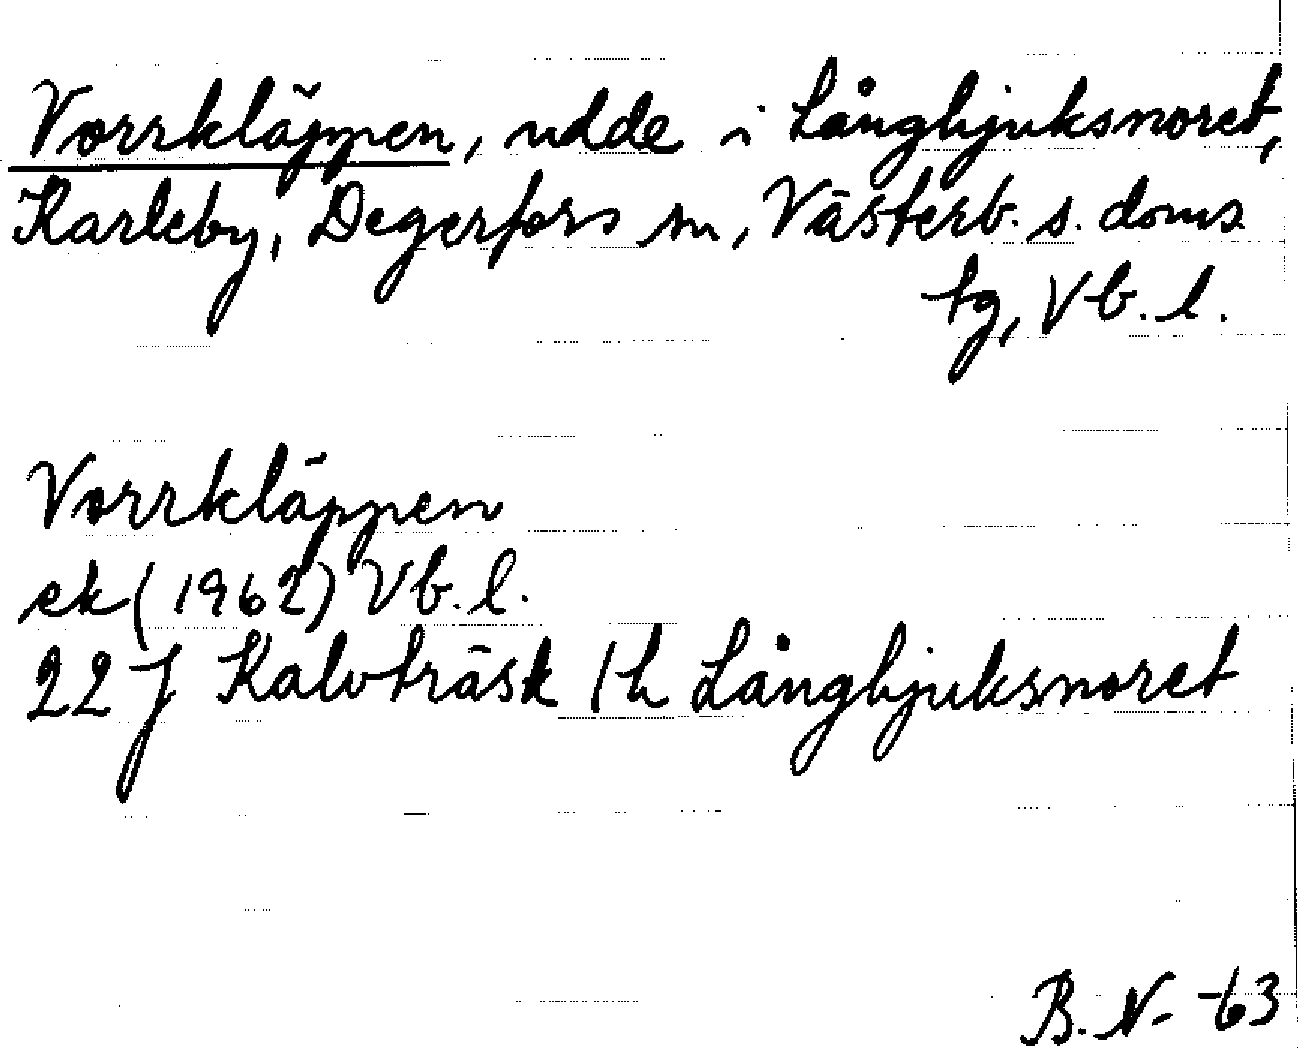 Vorrkläppen, udde i Långhjuksnoret,
Karleby, Degerfors sn, Västerb. s. doms
tg, Vb. l.
Vorrkläppen
ek (1962) Vb. l.
22 J Kalvträsk 1 h Långhjuksnoret
B. N. -63